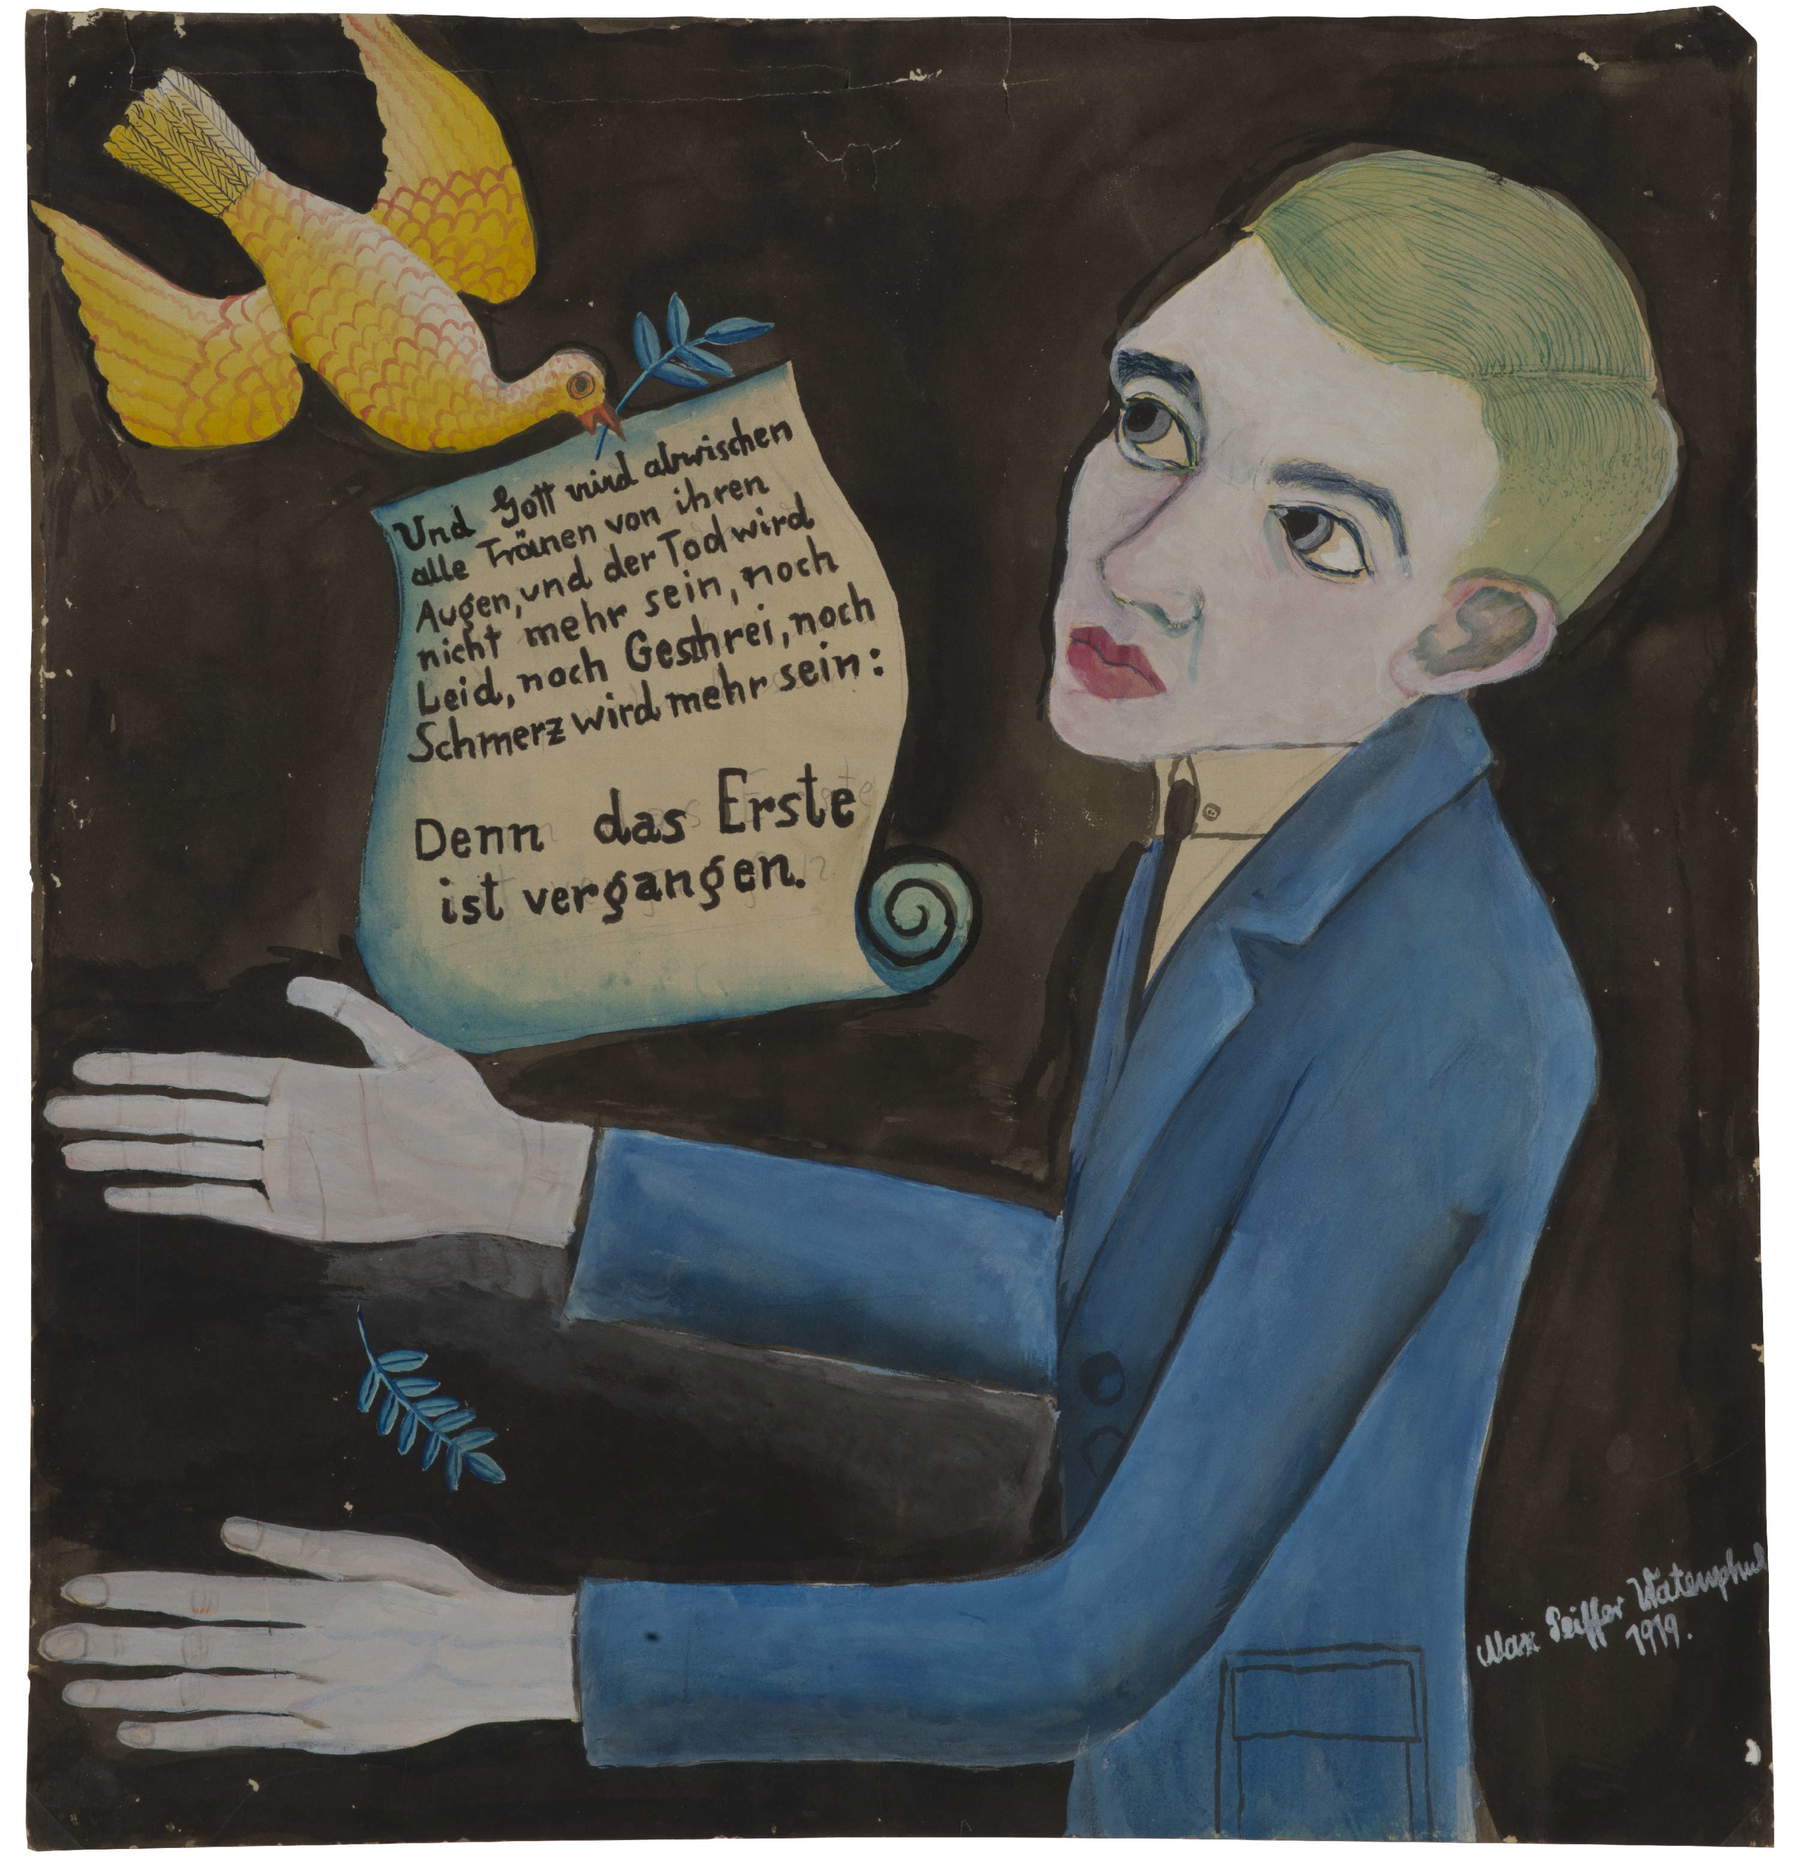 Und Gott wird abwischen
alle Tränen von ihren
Augen, und der Tod wird
nicht mehr sein, noch
Leid, noch Geschrei, noch
Schmerz wird mehr sein:
Denn das Erste
ist vergangen.
Max Peiffer Watenphul
1919.